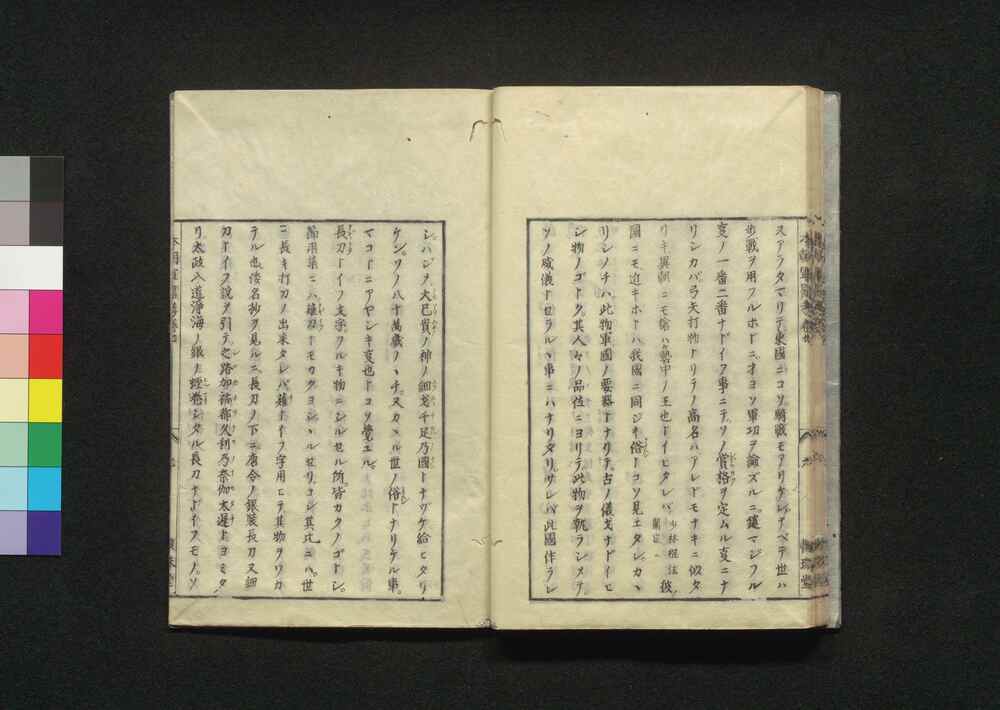 スアラタマリテ東國ニコソ騎戰モアリケレナベテ世ハ
歩戰ヲ用フルホドニオヨソ軍功ヲ論ズルニ鑓マジフル
事ノ一番二番ナドイフ事ニテソノ賞格ヲ定ムル事ニナ
リンカバ弓矢打物トリテノ高名ハアレドモナキニ似タ
リキ異朝ニモ鎗ハ藝中ノ王也トイヒタレバ 少林棍法 彼
國ニモ近キホトハ我國ニ同ジキ俗トコソ見エタレカヽ
リシノチハ此物軍國ノ要器トナリテ古ノ儀戈ナドイヒ
シ物ノゴトク其人々ノ品位ニヨリテ此物ヲ執ランメテ
ソノ威儀トセラルヽ事ニハナリタリサレバ此國作ラレ
シハジヲ大己貴ノ神ノ細戈千足乃國トナヅケ給ヒタリ
ケンソノ八十萬歳ノヽチ又カヽル世ノ俗トナリケル事
マコトニアヤシキ事也トコソ覺エル
長刀トイフ文字フルキ物ニシルセル所皆カクノゴトシ
節用集ニハ薙刀トモカクヨシシルセリコシ其式ニハ世
ニ長キ打刀ノ出來タレバ薙トイフ字用ヒテ其物ヲワカ
テル也倭名抄ヲ見ルニ長刀ノ下ニ唐令ノ銀裝長刀又細
刀トイフ説ヲ引テ之路加禰都久利乃奈伽太遲トヨミタ
リ太政入道淨海ノ銀ノ蛭卷シタル長刀ナドイフモノソ